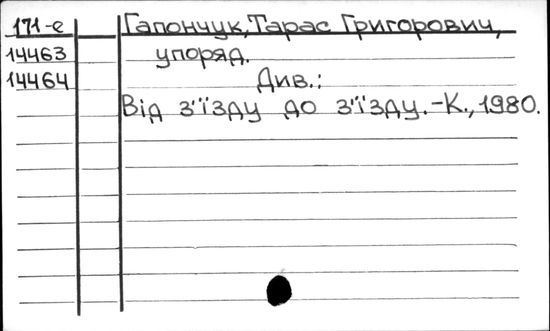 171-е Гапончук, Тарас Григорович,
14463 упоряд.
14464 Див.:
Від з'їзду до з'їзду.-К., 1980.